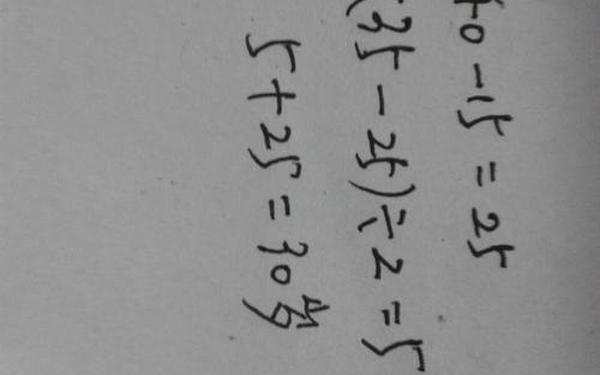 40-15=25
(35-25)÷2=5
5+25=30岁